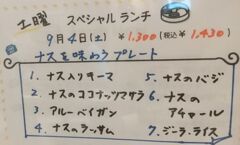 土曜 スペシャルランチ
9月4日(土) ¥1,300(税込¥1,430)
ナスを味わうプレート
1. ナス入りキーマ
2. ナスのココナッツマサラ
3. アルーベイガン
4. ナスのラッサム
5. ナスのバジ
6. ナスの
アチャール
7. ジーラ・ライス